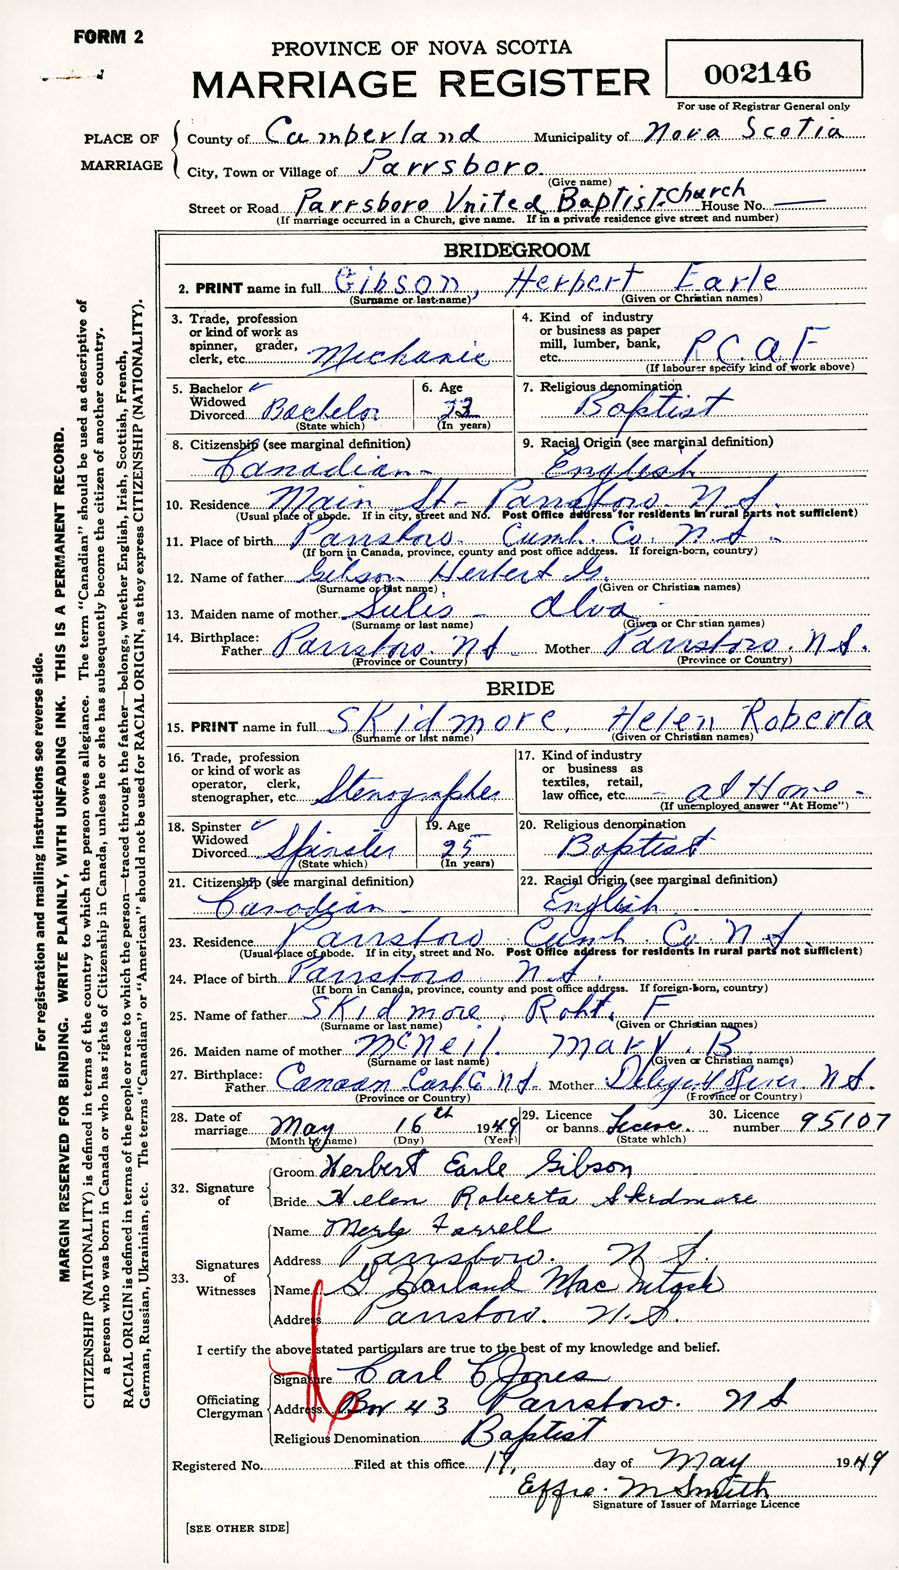 FORM 2
PROVINCE OF NOVA SCOTIA
MARRIAGE REGISTER
002146
For use of Registrar General only
PLACE OF MARRIAGE
County of Cumberland Municipality of Nova Scotia
City, Town or Village of Parrsboro
(Give name)
Street or Road Parrsboro United Baptist Church House No. —
(If marriage occurred in a Church, give name. If in a private residence give street and number)
BRIDEGROOM
2. PRINT name in full Gibson, Herbert Earle
(Surname or last name) (Given or Christian names)
3. Trade, profession or kind of work as spinner, grader, clerk, etc. Mechanic
4. Kind of industry or business as paper mill, lumber, bank, etc. R.C.A.F
(If labourer specify kind of work above)
5. Bachelor ✓ Widowed Divorced Bachelor
(State which)
6. Age 23
(In years)
7. Religious denomination Baptist
8. Citizenship (see marginal definition) Canadian
9. Racial Origin (see marginal definition) English
10. Residence Main St - Parrsboro. N.S.
(Usual place of abode. If in city, street and No. Post Office address for residents in rural parts not sufficient)
11. Place of birth Parrsboro. Cumb. Co. N.S.
(If born in Canada, province, county and post office address. If foreign-born, country)
12. Name of father Gibson Herbert G.
(Surname or last name) (Given or Christian names)
13. Maiden name of mother Sulis - Alva
(Surname or last name) (Given or Christian names)
14. Birthplace: Father Parrsboro. N S. Mother Parrsboro. N.S.
(Province or Country) (Province or Country)
BRIDE
15. PRINT name in full Skidmore, Helen Roberta
(Surname or last name) (Given or Christian names)
16. Trade, profession or kind of work as operator, clerk, stenographer, etc. Stenographer
17. Kind of industry or business as textiles, retail, law office, etc. - at Home -
(If unemployed answer "At Home")
18. Spinster ✓ Widowed Divorced Spinster
(State which)
19. Age 25
(In years)
20. Religious denomination Baptist
21. Citizenship (see marginal definition) Canadian
22. Racial Origin (see marginal definition) English
23. Residence Parrsboro Cumb. Co. N S.
(Usual place of abode. If in city, street and No. Post Office address for residents in rural parts not sufficient)
24. Place of birth Parrsboro N S.
(If born in Canada, province, county and post office address. If foreign-born, country)
25. Name of father Skidmore, Robt. F
(Surname or last name) (Given or Christian names)
26. Maiden name of mother McNeil. Mary. B.
(Surname or last name) (Given or Christian names)
27. Birthplace: Father Canaan N S. Mother River. N.S.
(Province or Country) (Province or Country)
28. Date of marriage May 16th 1949
(Month by name) (Day) (Year)
29. Licence or banns Licence.
(State which)
30. Licence number 95107
32. Signature of
Groom Herbert Earle Gibson
Bride Helen Roberta Skidmore
33. Signatures of Witnesses
Name Merle Farrell
Address Parrsboro. N S.
Name G Harland MacIntosh
Address Parrsboro. N.S.
I certify the above stated particulars are true to the best of my knowledge and belief.
Officiating Clergyman
Signature Carl C Jones
Address Box 43 Parrsboro. N S
Religious Denomination Baptist
Registered No. Filed at this office 19, day of May 1949
Effie. M Smith
Signature of Issuer of Marriage Licence
[SEE OTHER SIDE]
For registration and mailing instructions see reverse side.
MARGIN RESERVED FOR BINDING. WRITE PLAINLY, WITH UNFADING INK. THIS IS A PERMANENT RECORD.
CITIZENSHIP (NATIONALITY) is defined in terms of the country to which the person owes allegiance. The term "Canadian" should be used as descriptive of
a person who was born in Canada or who has rights of Citizenship in Canada, unless he or she has subsequently become the citizen of another country.
RACIAL ORIGIN is defined in terms of the people or race to which the person—traced through the father—belongs, whether English, Irish, Scottish, French,
German, Russian, Ukrainian, etc. The terms "Canadian" or "American" should not be used for RACIAL ORIGIN, as they express CITIZENSHIP (NATIONALITY).